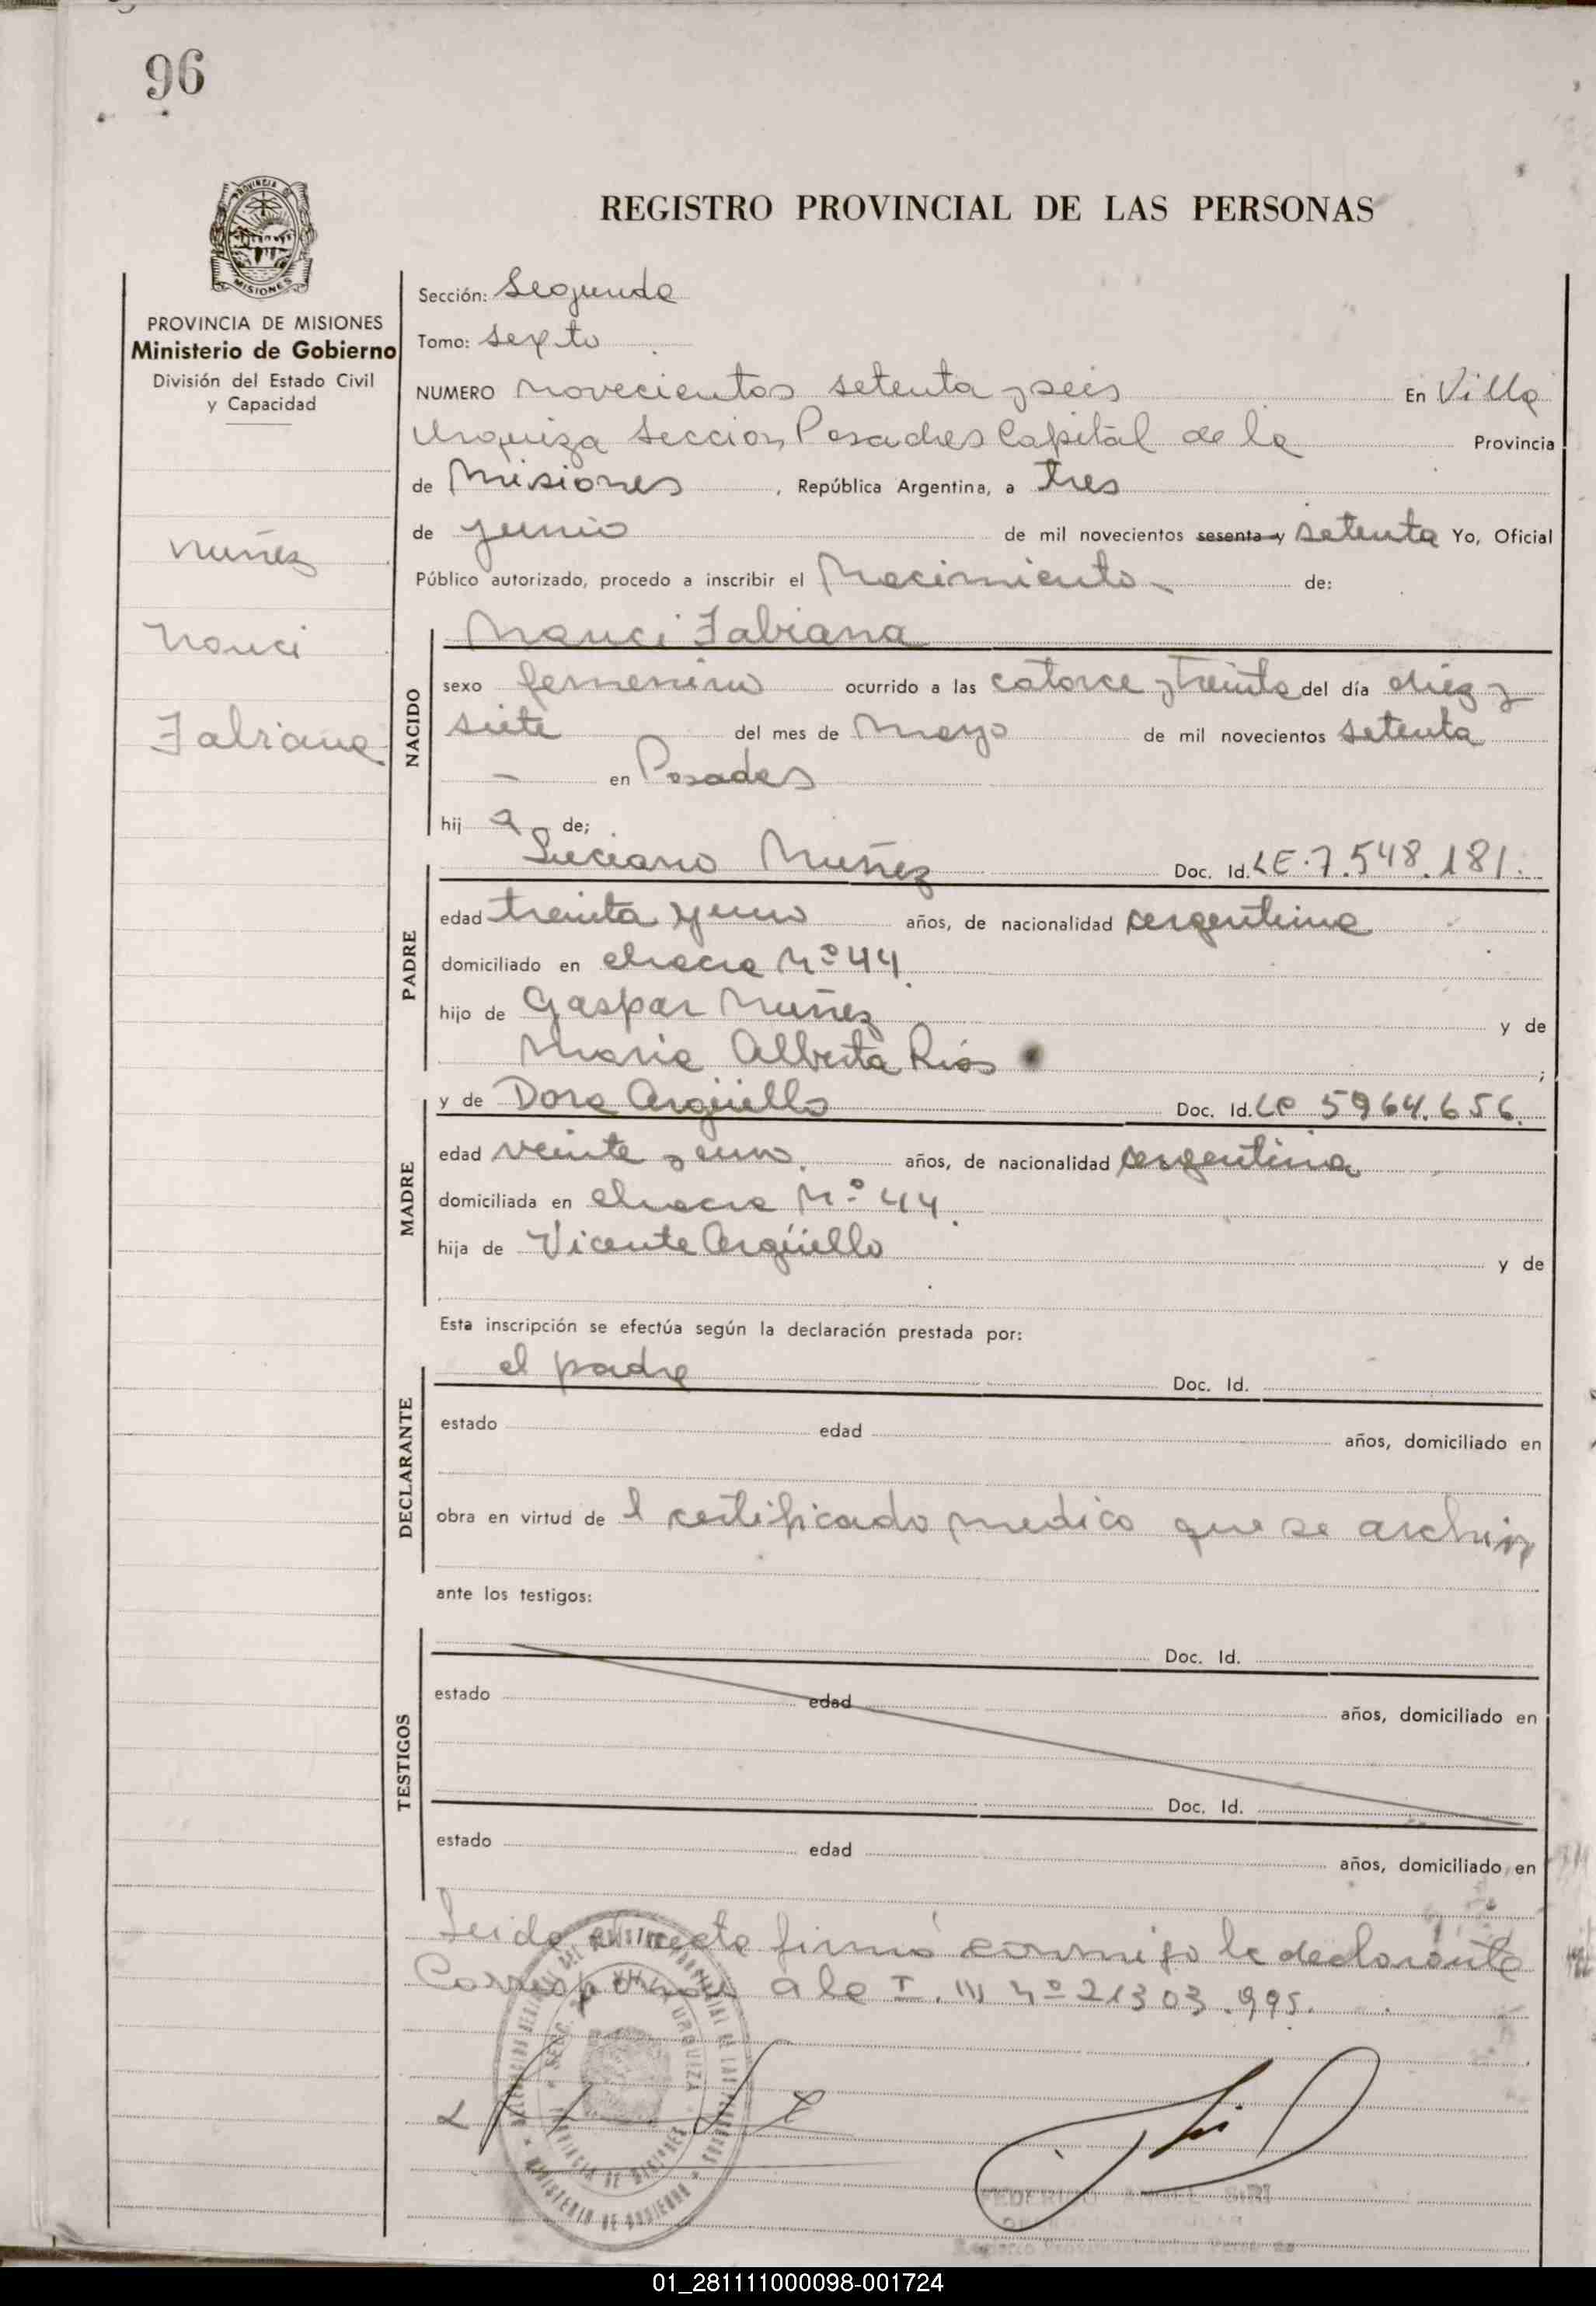 96
PROVINCIA DE
MISIONES
PROVINCIA DE MISIONES
Ministerio de Gobierno
División del Estado Civil
y Capacidad
Nuñez
Nanci
Fabiana
REGISTRO PROVINCIAL DE LAS PERSONAS
Sección: Segunda
Tomo: Sexto
NUMERO novecientos setenta y seis En Villa
Urquiza Seccion Posadas Capital de la Provincia
de Misiones, República Argentina, a tres
de junio de mil novecientos sesenta y setenta Yo, Oficial
Público autorizado, procedo a inscribir el Nacimiento de:
NACIDO
Nanci Fabiana
sexo femenino ocurrido a las catorce y treinta del día diez y
siete del mes de Mayo de mil novecientos setenta
— en Posadas
hij a de;
PADRE
Luciano Nuñez Doc. Id. LE.7.548.181.
edad treinta y uno años, de nacionalidad argentina
domiciliado en chacra Nº 44.
hijo de Gaspar Nuñez y de
Maria Alberta Rios ;
MADRE
y de Dora Argüello Doc. Id. LC 5964.656.
edad veinte y uno. años, de nacionalidad argentina
domiciliada en chacra Nº 44.
hija de Vicente Argüello y de
Esta inscripción se efectúa según la declaración prestada por:
DECLARANTE
el padre Doc. Id.
estado edad años, domiciliado en
obra en virtud de l certificado medico que se archiva
ante los testigos:
TESTIGOS
Doc. Id.
estado edad años, domiciliado en
Doc. Id.
estado edad años, domiciliado en
Leida el acta firmó conmigo le declarante
Corresponde a le I. III nº 21303.995.
SECC. VILLA URQUIZA
PROVINCIA DE MISIONES
MINISTERIO DE GOBIERNO
FEDERICO ANGEL SIRI
Registro Provincial de las Personas
01_281111000098-001724